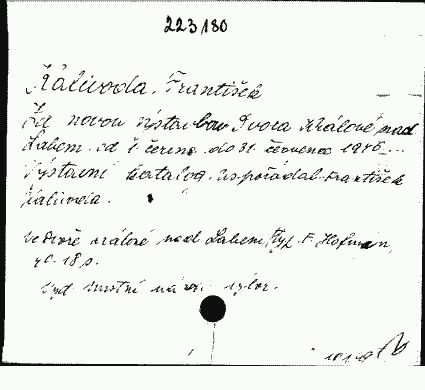 223180
Kalivoda, František
Za novou výstavbou Dvora Králové nad
Labem. od 1. června do 31. července 1946...
Výstavní katalog. Uspořádal František
Kalivoda.
Ve Dvoře Králové nad Labem, Typ. F. Hofman,
18 s.
Vyd. Místní nár. výbor.